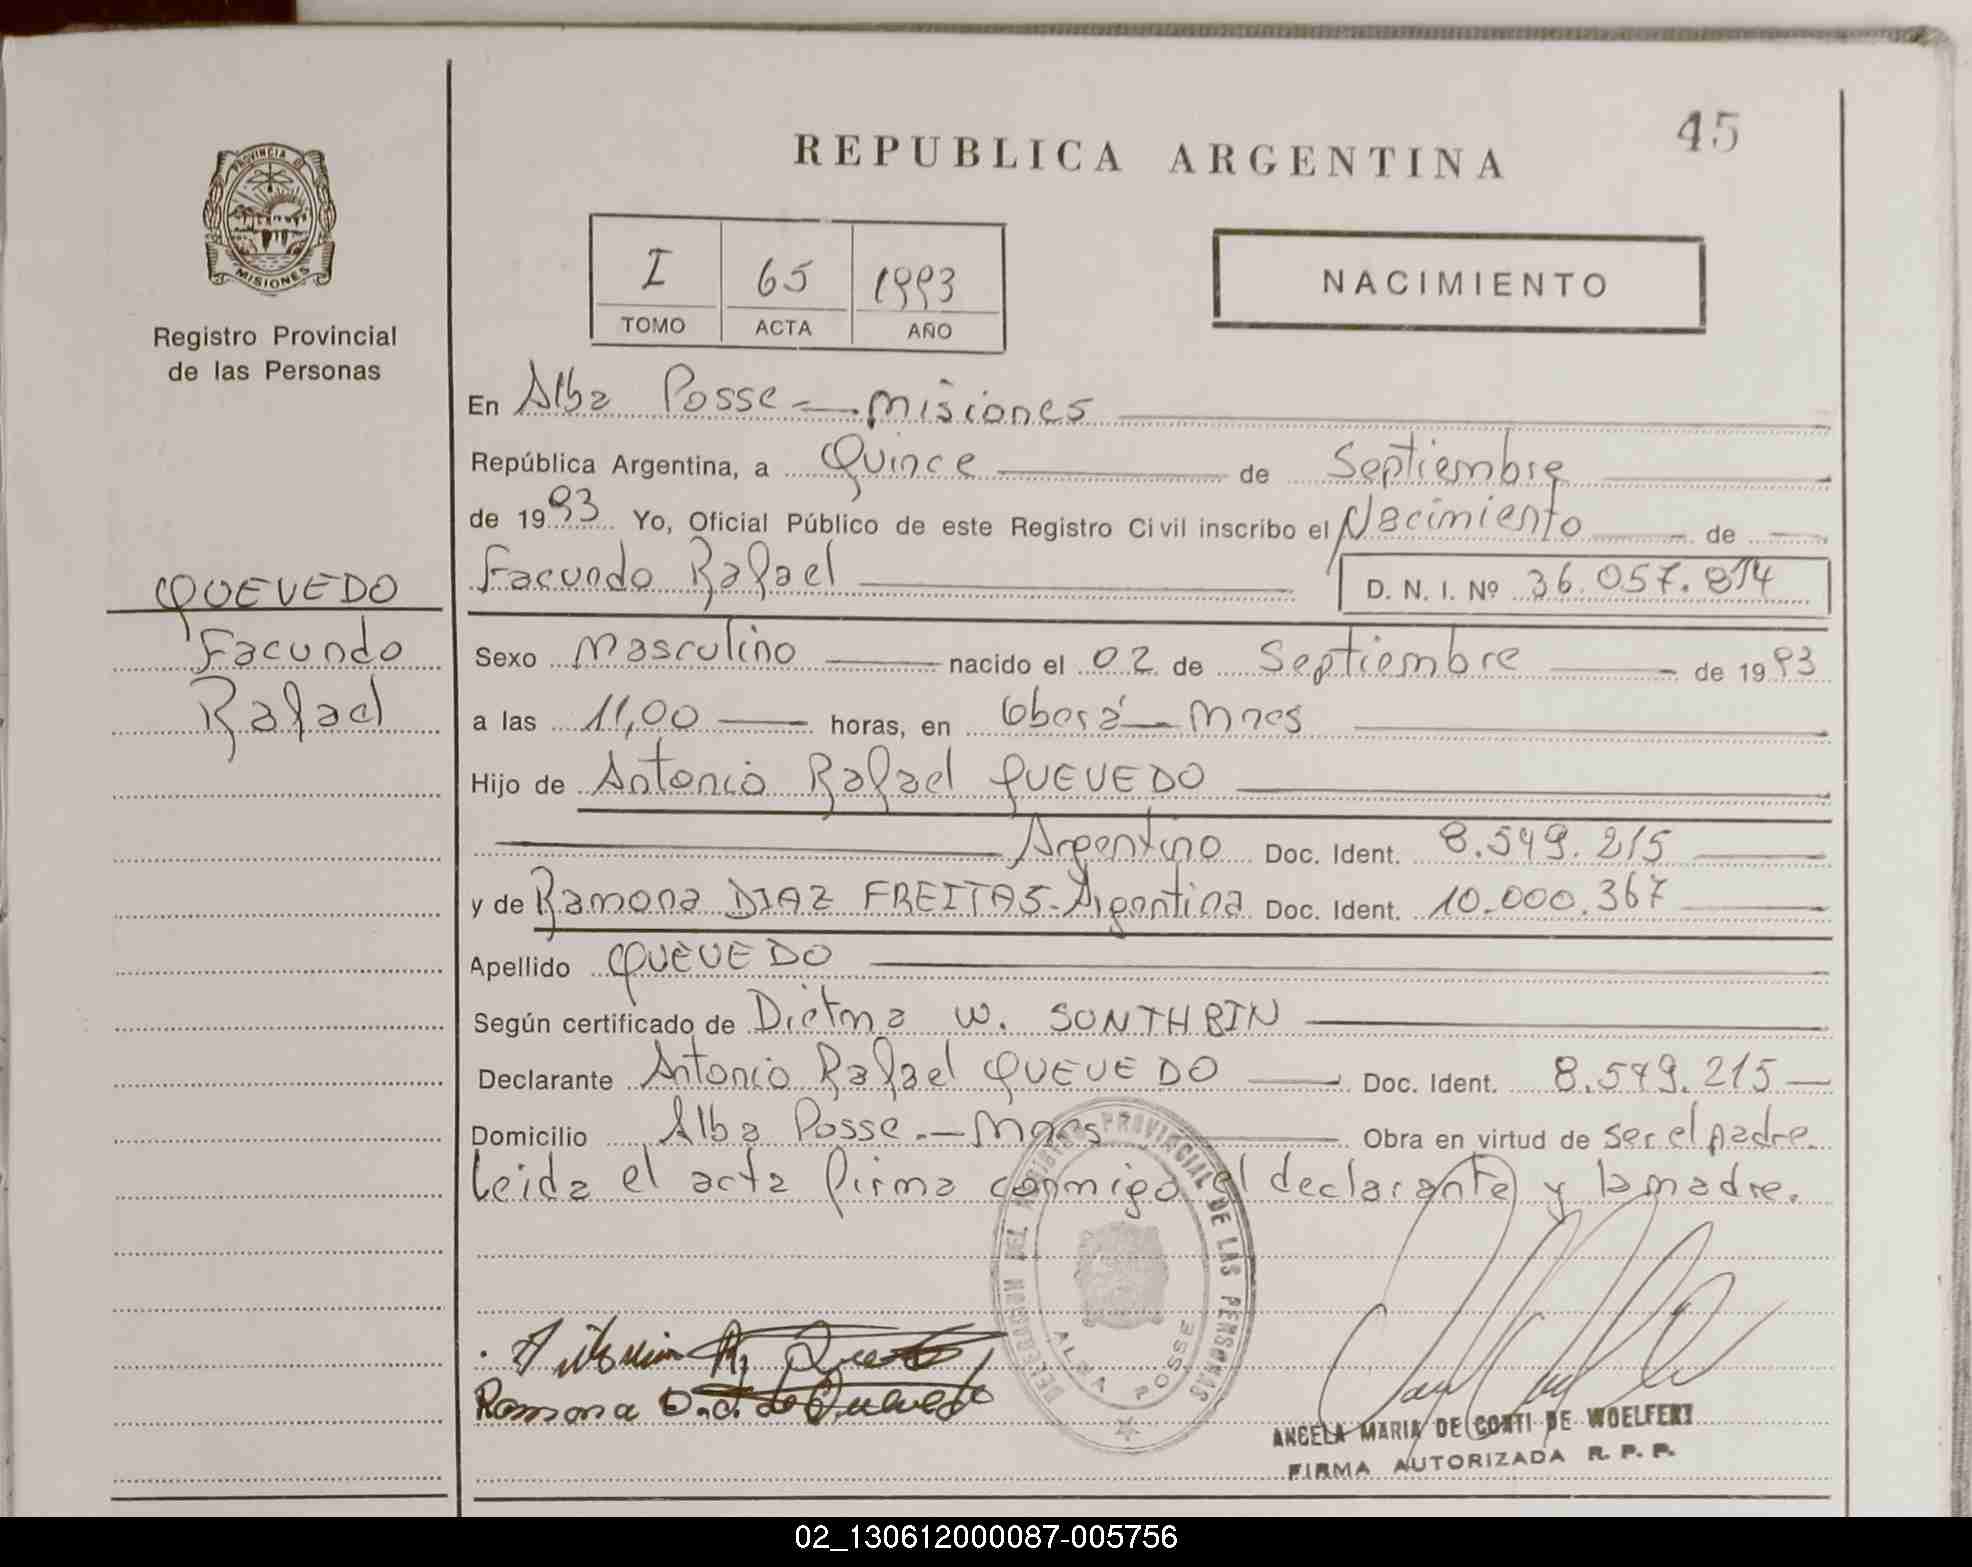 45
REPUBLICA ARGENTINA
PROVINCIA DE
MISIONES
Registro Provincial
de las Personas
I 65 1993
TOMO ACTA AÑO
NACIMIENTO
En Alba Posse - Misiones
República Argentina, a Quince de Septiembre
de 1993 Yo, Oficial Público de este Registro Civil inscribo el Nacimiento de
Facundo Rafael D. N. I. Nº 36.057.814
QUEVEDO
Facundo
Rafael
Sexo Masculino nacido el 02 de Septiembre de 1993
a las 11,00 horas, en Oberá - Mnes
Hijo de Antonio Rafael QUEVEDO
Argentino Doc. Ident. 8.549.215
y de Ramona DIAZ FREITAS - Argentina Doc. Ident. 10.000.367
Apellido QUEVEDO
Según certificado de Dietma W. SONTHBIN
Declarante Antonio Rafael QUEVEDO Doc. Ident. 8.549.215
Domicilio Alba Posse.- Mnes Obra en virtud de ser el padre.
Leida el acta firma conmigo el declarante y la madre.
DELEGACION DEL REGISTRO PROVINCIAL DE LAS PERSONAS
ALBA POSSE
Ramona D. d. de Quevedo
ANGELA MARIA DE CONTI DE WOELFERT
FIRMA AUTORIZADA R. P. P.
02_130612000087-005756